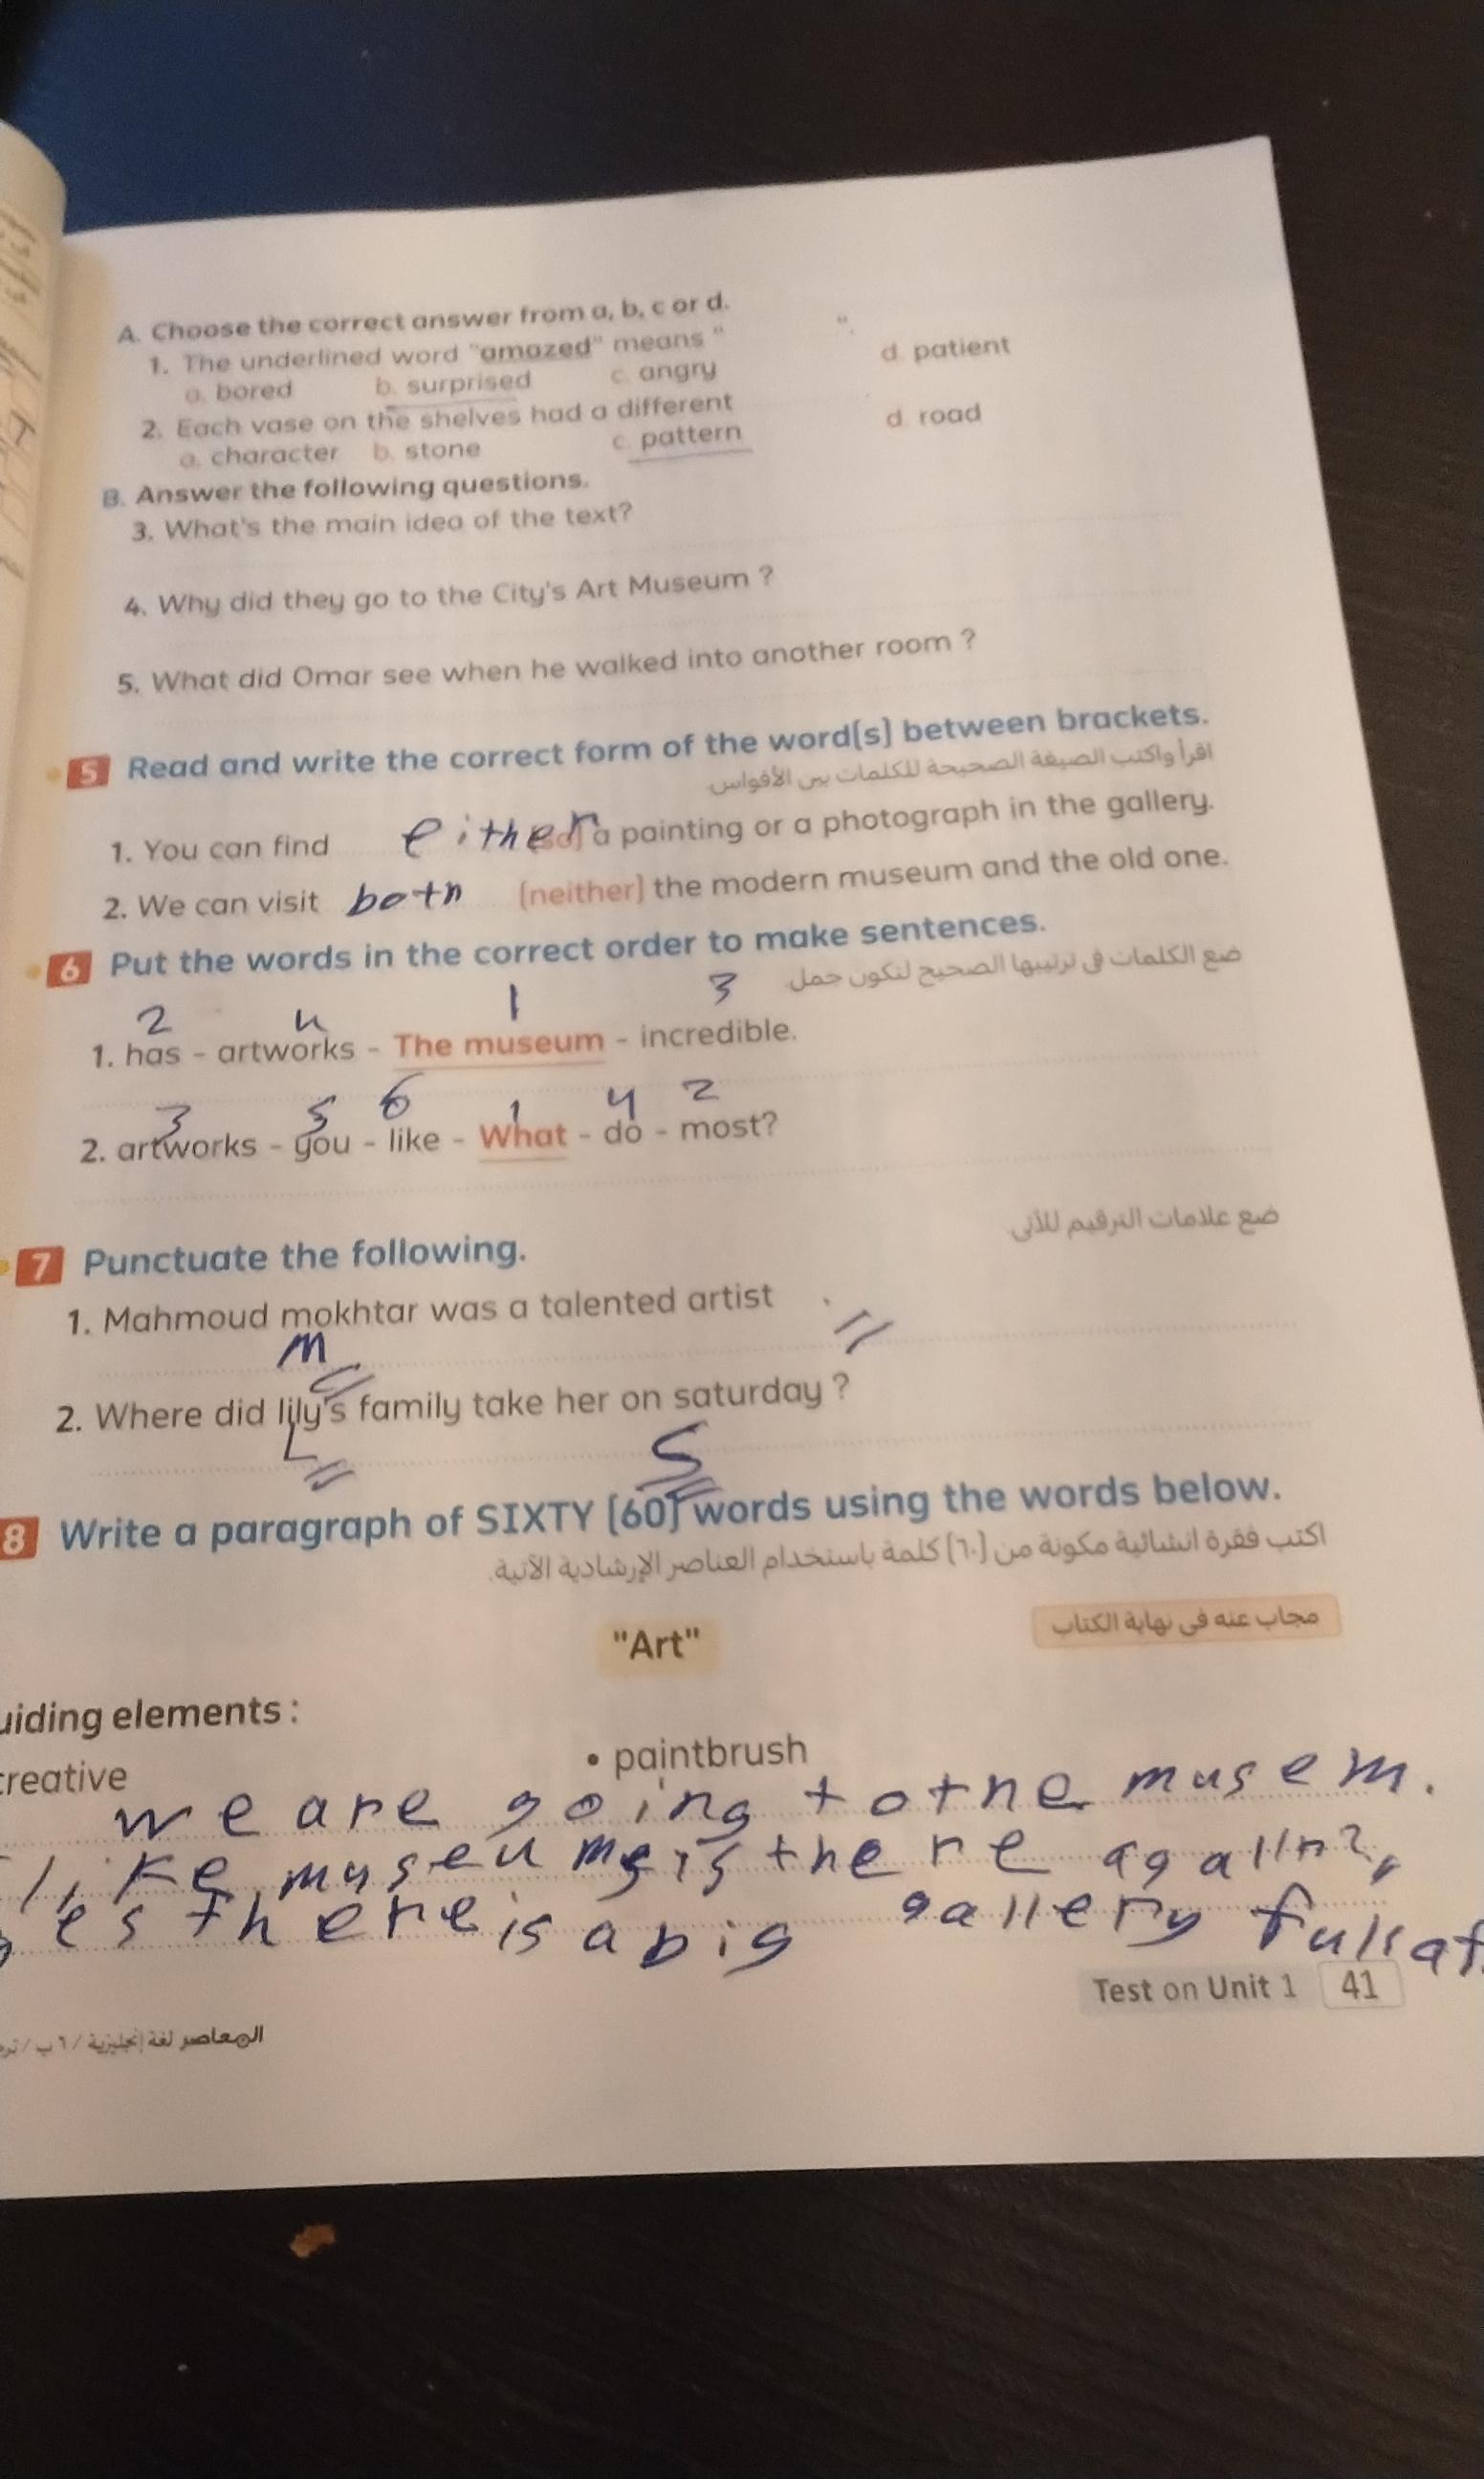 A. Choose the correct answer from a, b, c or d.
1. The underlined word "amazed" means " ".
a. bored b. surprised c. angry d. patient
2. Each vase on the shelves had a different
a. character b. stone c. pattern d. road
B. Answer the following questions.
3. What's the main idea of the text?
4. Why did they go to the City's Art Museum ?
5. What did Omar see when he walked into another room ?
5 Read and write the correct form of the word(s) between brackets.
اقرأ واكتب الصيغة الصحيحة للكلمات بين الأقواس
1. You can find either a painting or a photograph in the gallery.
2. We can visit both (neither) the modern museum and the old one.
6 Put the words in the correct order to make sentences.
ضع الكلمات فى ترتيبها الصحيح لتكون جمل.
2 4 1 3
1. has - artworks - The museum - incredible.
3 5 6 1 4 2
2. artworks - you - like - What - do - most?
7 Punctuate the following.
ضع علامات الترقيم للآتى.
1. Mahmoud mokhtar was a talented artist .
M
2. Where did lily's family take her on saturday ?
L S
8 Write a paragraph of SIXTY (60) words using the words below.
اكتب فقرة انشائية مكونة من (٦٠) كلمة باستخدام العناصر الإرشادية الآتية.
"Art"
مجاب عنه فى نهاية الكتاب
uiding elements :
creative • paintbrush
we are going to the musem.
like museum is there
es there is a big gallery full
Test on Unit 1 41
المعاصر لغة إنجليزية / ٦ ب /